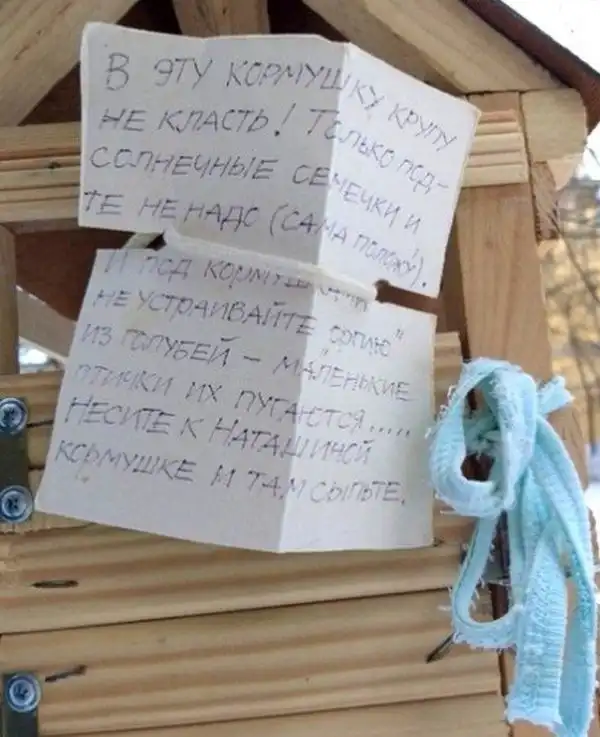 В ЭТУ КОРМУШКУ КРУПУ
НЕ КЛАСТЬ! ТОЛЬКО ПОД-
СОЛНЕЧНЫЕ СЕМЕЧКИ И
ТЕ НЕ НАДО (САМА ПОЛОЖУ!).
И ПОД КОРМУШКАМИ
НЕ УСТРАИВАЙТЕ "ОРГИЮ"
ИЗ ГОЛУБЕЙ – МАЛЕНЬКИЕ
ПТИЧКИ ИХ ПУГАЮТСЯ.....
НЕСИТЕ К НАТАШИНОЙ
КОРМУШКЕ И ТАМ СЫПЬТЕ.